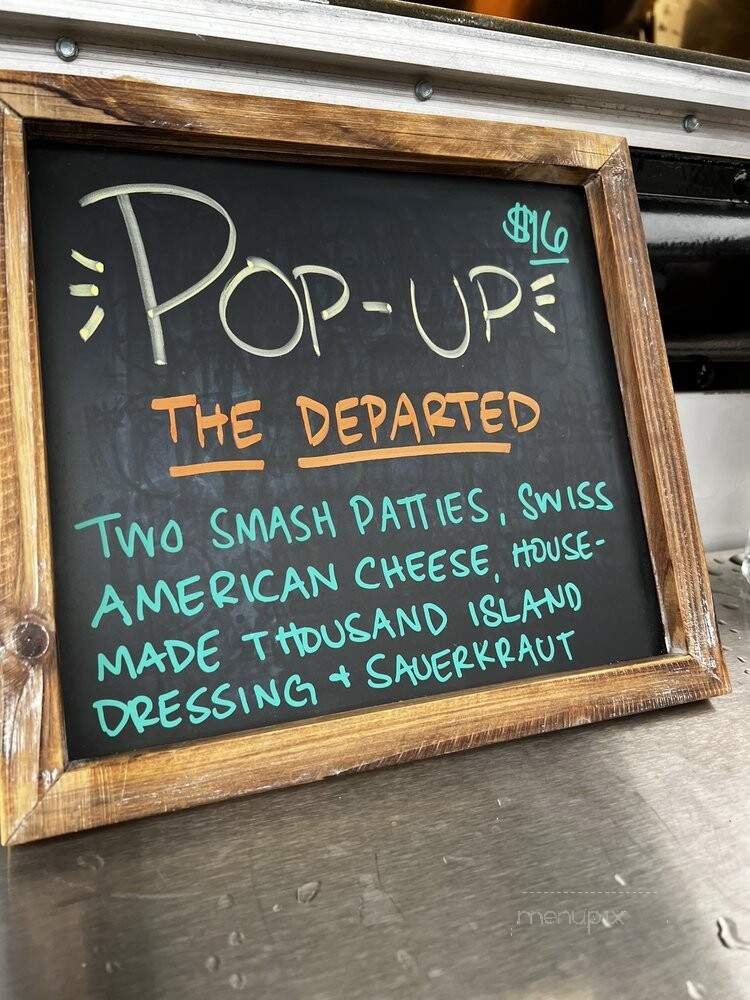 $16
POP-UP
THE DEPARTED
TWO SMASH PATTIES, SWISS
AMERICAN CHEESE, HOUSE-
MADE THOUSAND ISLAND
DRESSING + SAUERKRAUT
menupix